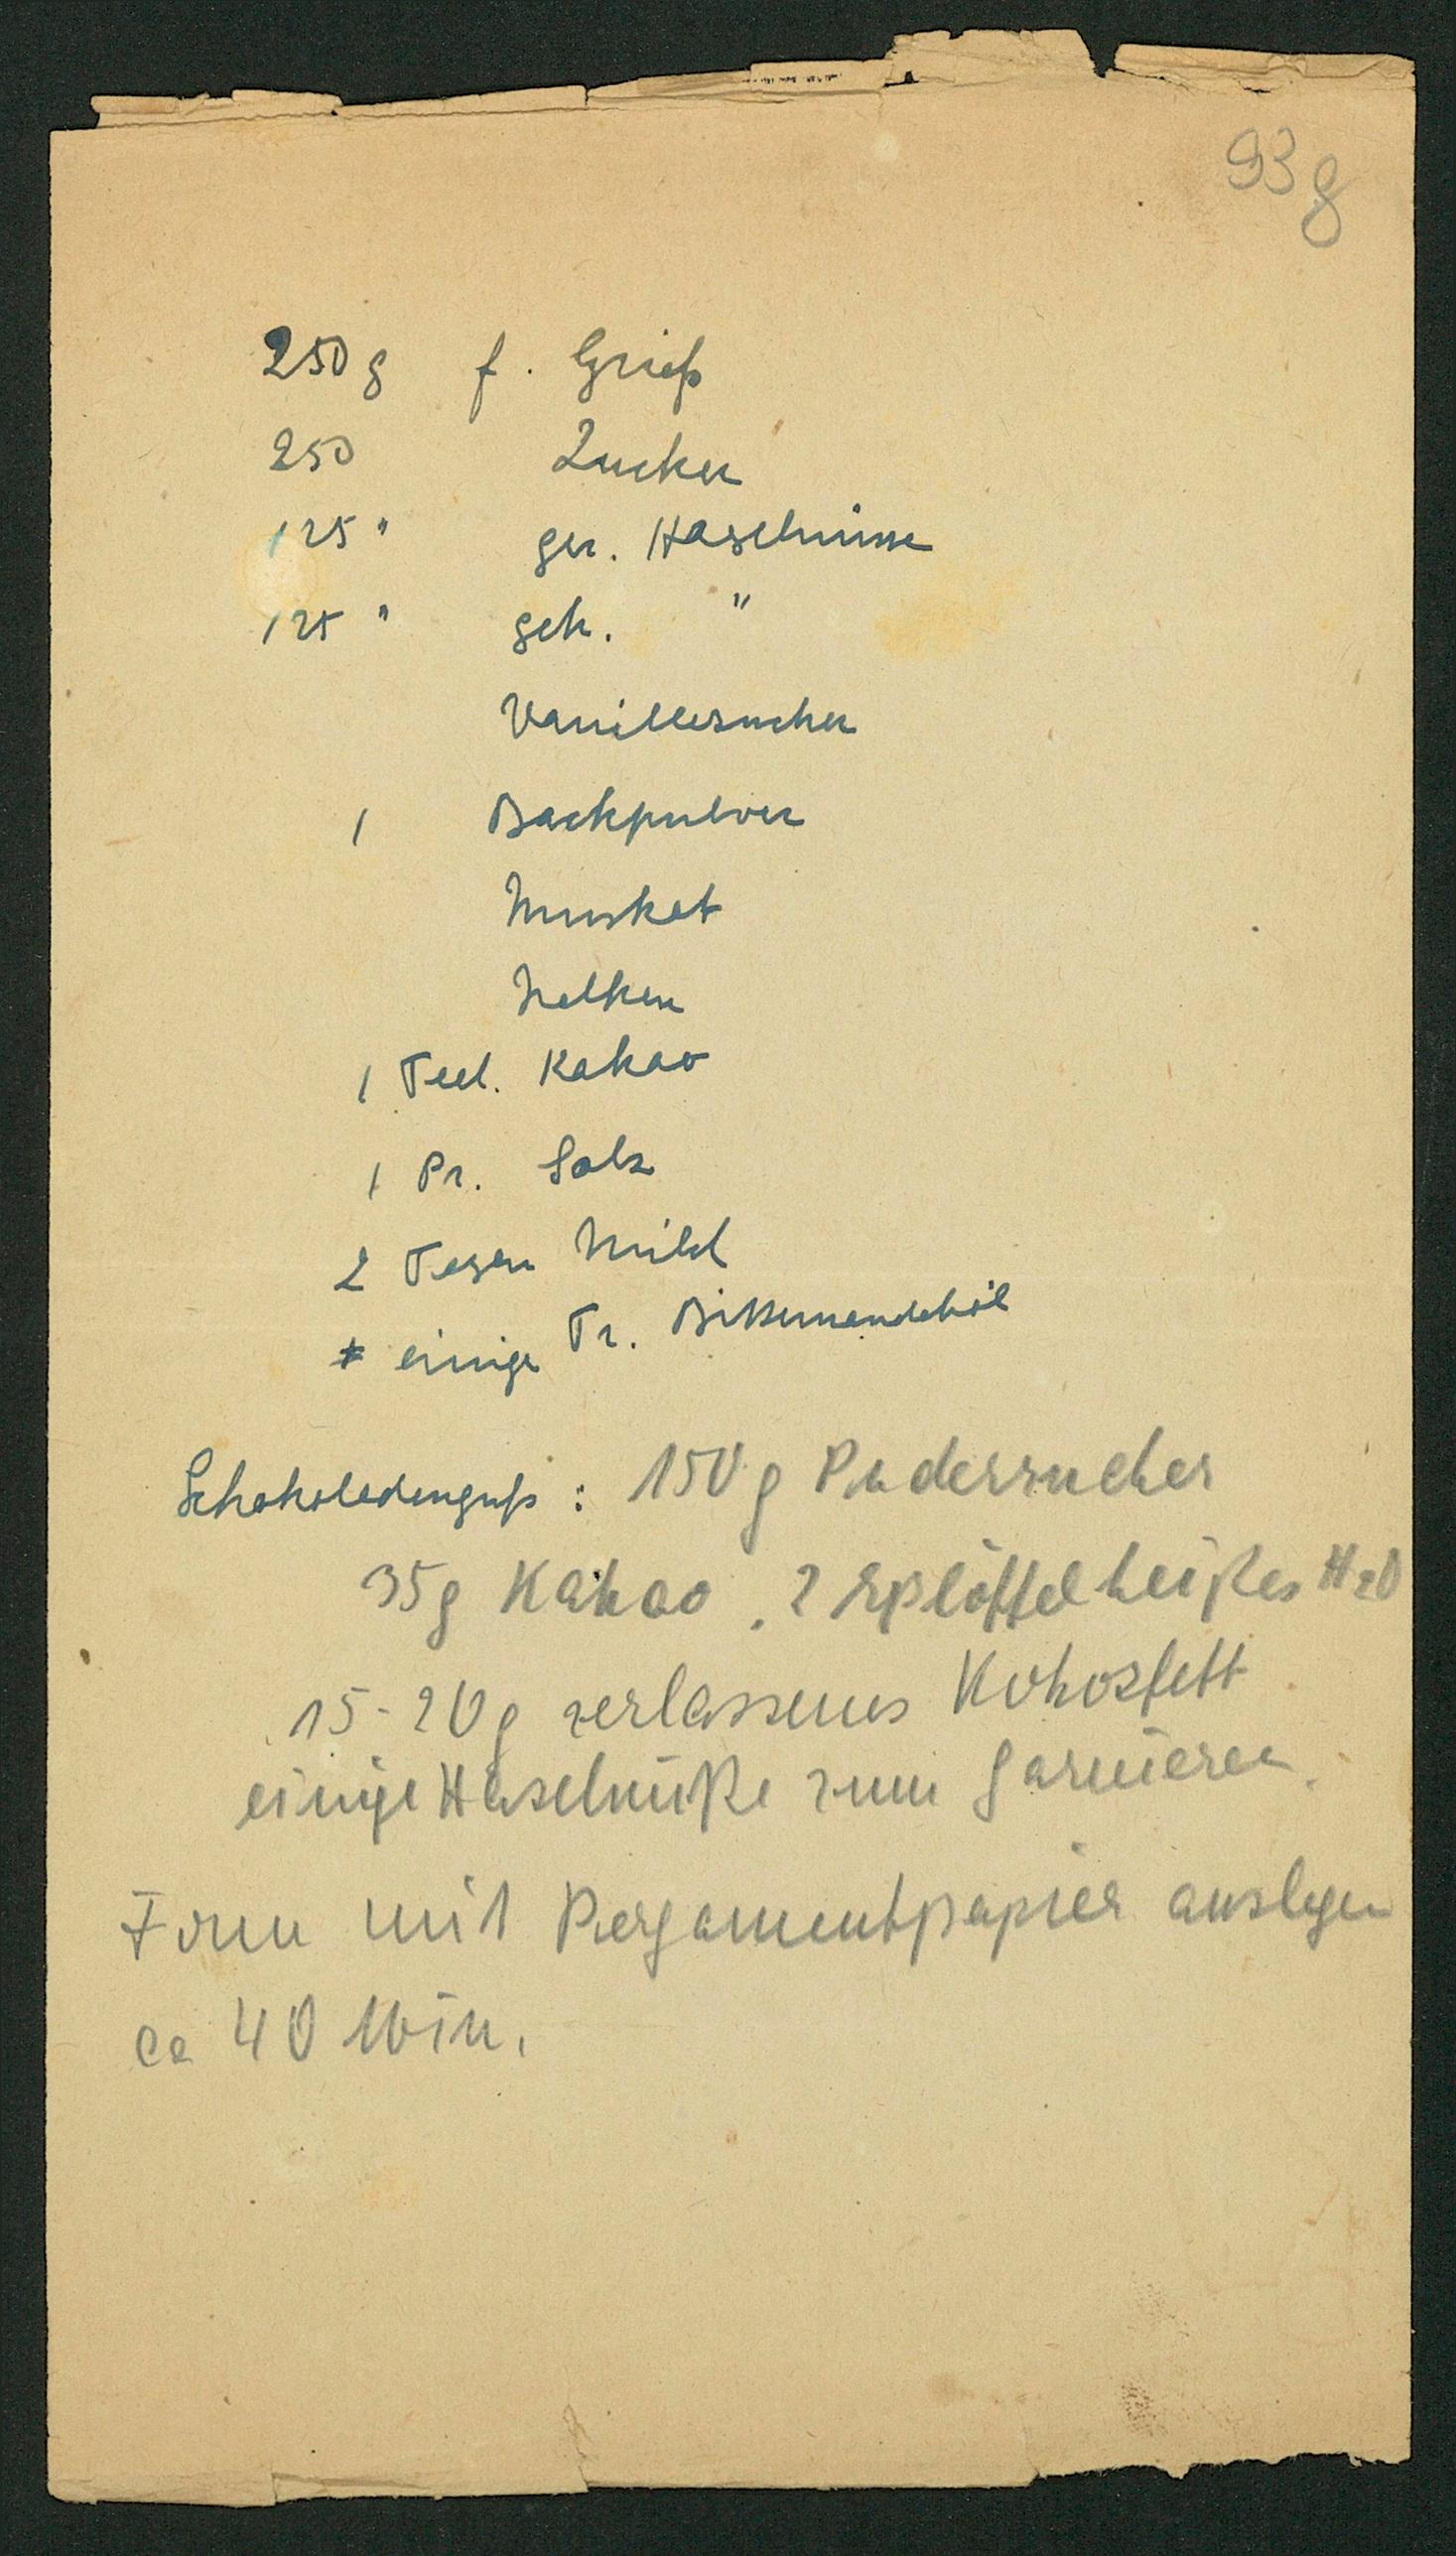 93g
250 g f. Grieß
250 Zucker
125 " ger. Haselnüsse
125 " geh. "
Vanillezucker
1 Backpulver
Muskat
Nelken
1 Teel. Kakao
1 Pr. Salz
2 Tassen Milch
einige Tr. Bittermandelöl
Schokoladenguß : 150 g Puderzucker
35g Kakao . 2 Eßlöffel heißes H2O
15-20g zerlassenes Kokosfett
einige Haselnüße zum garnieren.
Form mit Pergamentpapier auslegen
ca 40 Min.